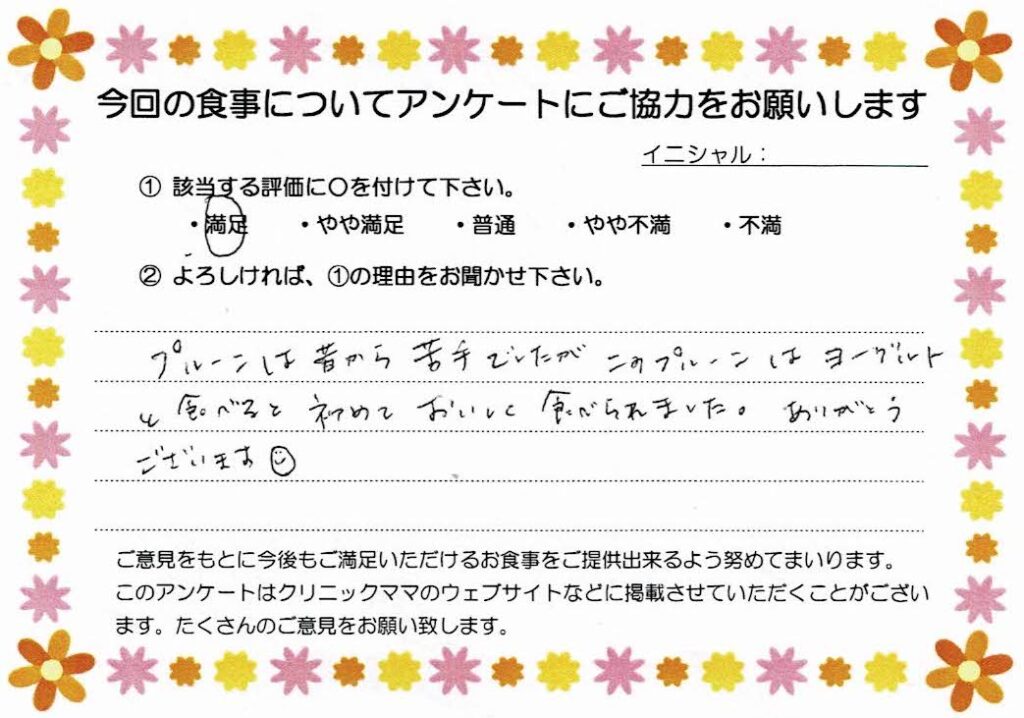 今回の食事についてアンケートにご協力をお願いします
イニシャル：
① 該当する評価に〇を付けて下さい。
・満足 ・やや満足 ・普通 ・やや不満 ・不満
② よろしければ、①の理由をお聞かせ下さい。
プルーンは昔から苦手でしたが このプルーンは ヨーグルト
と食べると 初めて おいしく 食べられました。 ありがとう
ございます
ご意見をもとに今後もご満足いただけるお食事をご提供出来るよう努めてまいります。
このアンケートはクリニックママのウェブサイトなどに掲載させていただくことがござい
ます。たくさんのご意見をお願い致します。